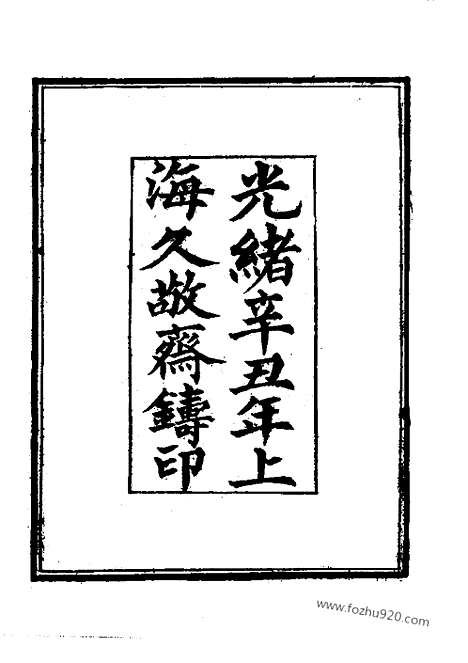 光緒辛丑年上
海久敬齋鑄印
www.fozhu920.com